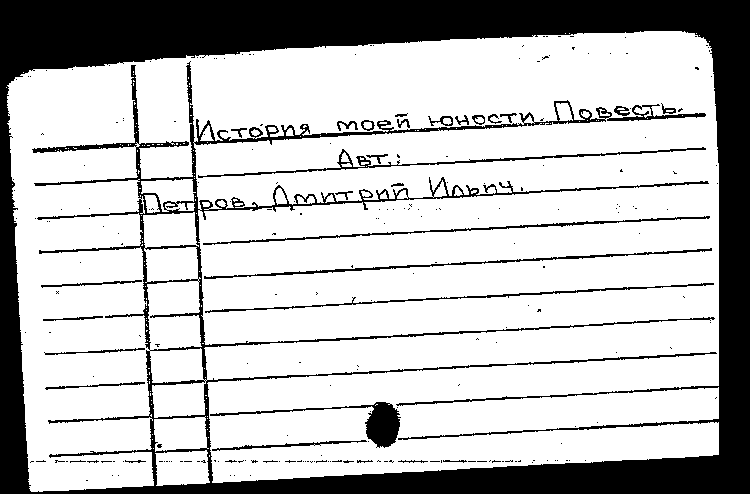 История моей юности. Повесть.
Авт.:
Петров, Дмитрий Ильич.